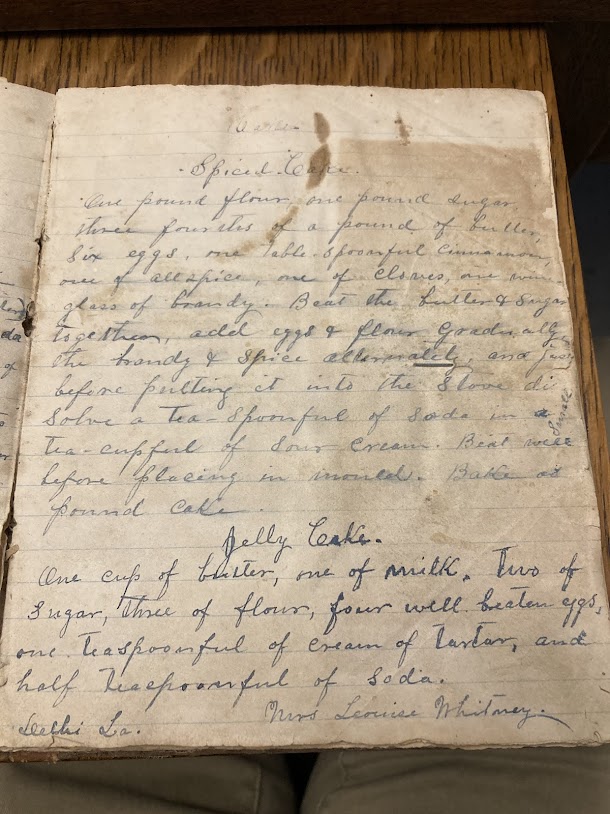 Spiced Cake.
One pound flour, one pound sugar,
three fourths of a pound of butter,
six eggs, one table-spoonful cinnamon,
one of allspice, one of cloves, one wine
glass of brandy. Beat the butter & sugar
together, add eggs & flour gradually
the brandy & spice alternately, and just
before putting it into the stove di
solve a tea-spoonful of soda in a
tea-cupful of sour cream. Beat well
before placing in mould. Bake as
pound cake.
Jelly Cake.
One cup of butter, one of milk. Two of
sugar, three of flour, four well beaten eggs,
one teaspoonful of cream of tartar, and
half teaspoonful of soda.
Mrs Leouise Whitney.
Delhi La.